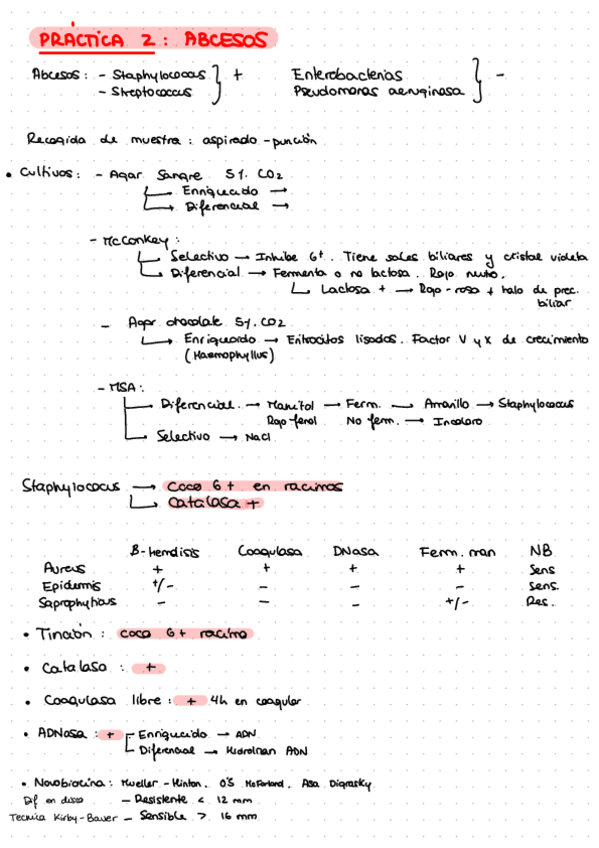 PRÁCTICA 2: ABCESOS
Abcesos: - Staphylococcus } + Enterobacterias } -
- Streptococcus Pseudomonas aeruginosa
Recogida de muestra: aspirado - punción
• Cultivos: - Agar Sangre 5%. CO2
Enriquecido →
Diferencial →
- McConkey:
Selectivo → Inhibe G+. Tiene sales biliares y cristal violeta
Diferencial → Fermenta o no lactosa. Rojo nutro.
Lactosa + → Rojo-rosa + halo de prec. biliar
- Agar chocolate 5%. CO2
Enriquecido → Eritrocitos lisados. Factor V y X de crecimiento
(Haemophyllus)
- MSA:
Diferencial. → Manitol → Ferm. → Amarillo → Staphylococcus
Rojo fenol No ferm. → Incoloro
Selectivo → NaCl
Staphylococcus → Coco G+ en racimos
Catalasa +
β-hemolisis Coagulasa DNasa Ferm. man NB
Aureus + + + + Sens
Epidermis +/- - - - Sens.
Saprophyticus - - - +/- Res.
• Tinción: coco G+ racimo
• Catalasa: +
• Coagulasa libre: + 4h en coagular
• ADNasa: + Enriquecido → ADN
Diferencial → Hidrolizan ADN
• Novobiocina: Mueller-Hinton. 0'5 McFarland. Asa Digrasky
Dif en disco - Resistente < 12 mm
Tecnica Kirby-Bauer - Sensible > 16 mm